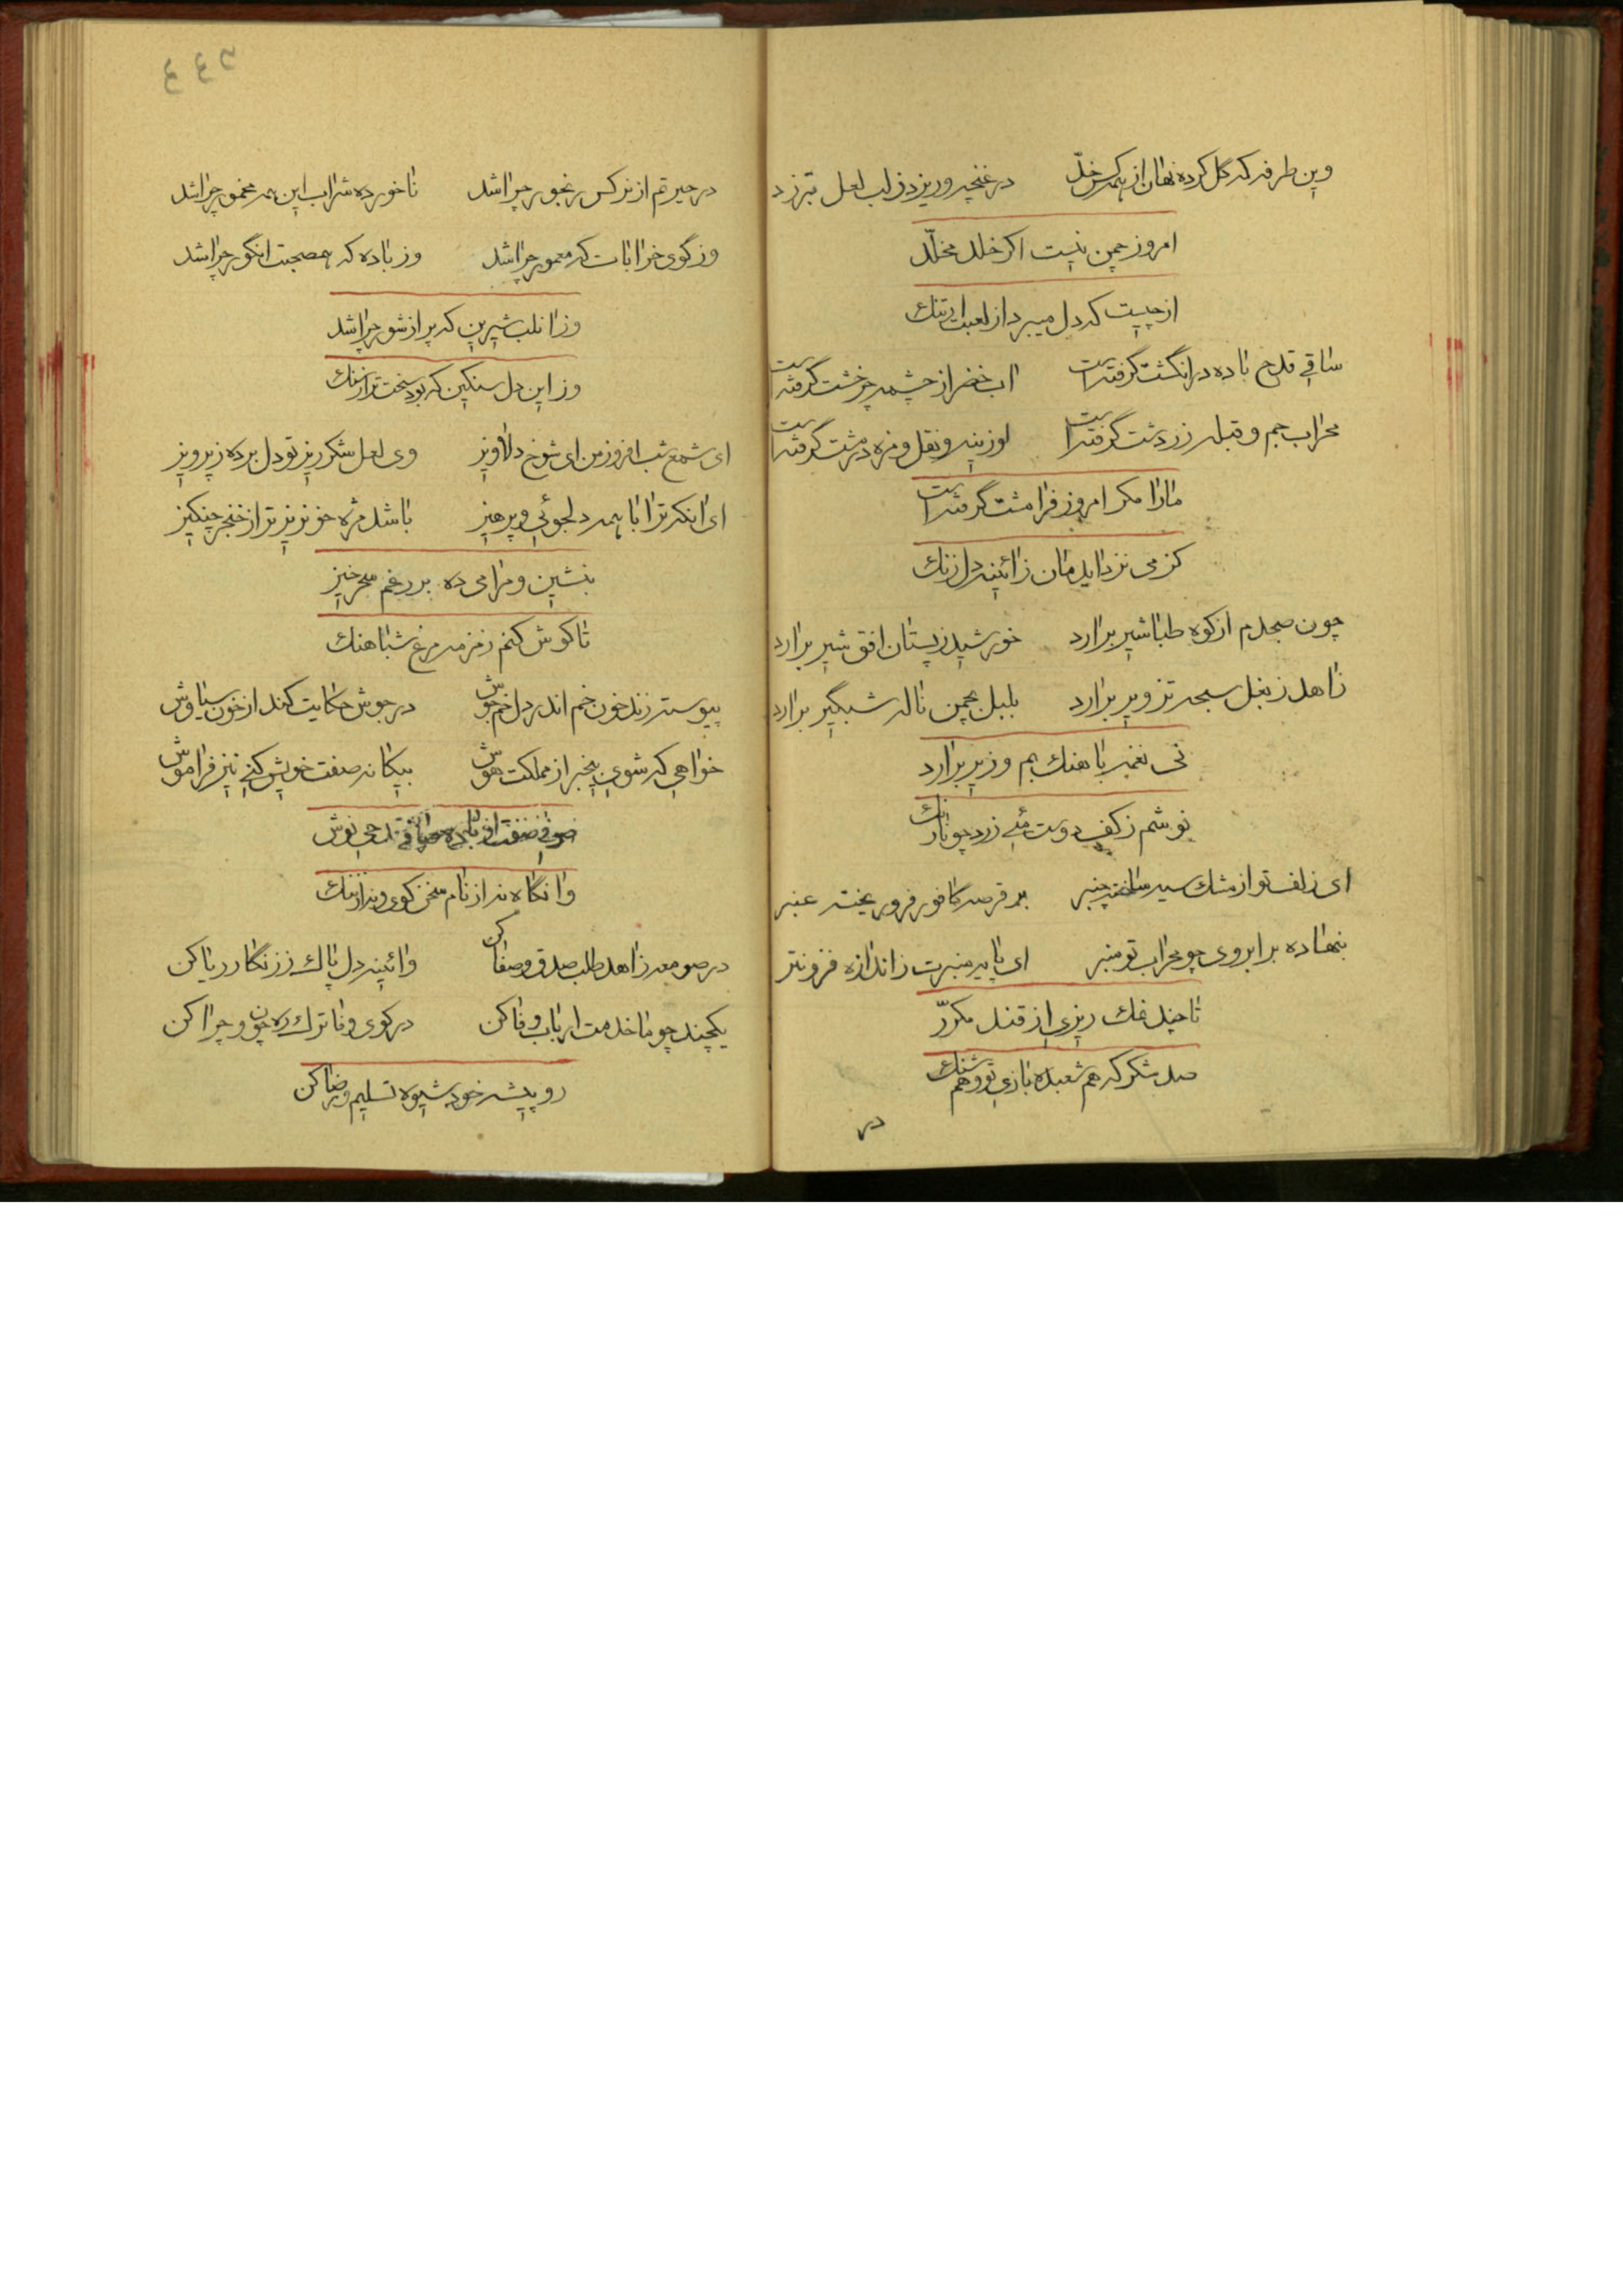 وین طرفه که گل کرده نهان از همه کس خدّ در غنچه و ریزد ز لب لعل تبرزد
امروز چمن نیست اکر خلد مخلّد
از چیست که دل میبرد از لعبت ارتنك
ساقی قدح باده در انگشت گرفته است اب خضر از چشمه چرخشت گرفته است
محراب جم و قبله زردشت گرفته است لوزینه و نقل و مزه در مشت گرفته است
مارا مکر امروز فرامشت گرفته است
کز می نزداید مان زائینه دل زنك
چون صبحدم از کوه طباشیر برارد خورشید ز پستان افق شیر برارد
زاهد ز بغل سبحه تزویر برارد بلبل بچمن ناله شبگیر برارد
نی نغمه باهنك بم و زیر برارد
نوشم ز کف دوست مئی زرد چو نارنك
ای زلف تو از مشك سیه ساخته چنبر بر قرصه کافور فرو ریخته عنبر
بنهاده بر ابروی چو محراب تو منبر ای پایه منبرت ز اندازه فزونتر
تا چند نمك ریزی از قند مکرّر
صد شکر که هم شعبده بازی تو و هم شنك
در
در حیرتم از نرکس رنجور چرا شد ناخورده شراب این همه مخمور چرا شد
وز گوی خرابات که معمور چرا شد وز باده که همصحبت انگور چرا شد
وز انلب شیرین که پر از شور چرا شد
وز این دل سنکین که بود سخت تر از سنك
ای شمع شب افروز من ای شوخ دلاویز وی لعل شکر ریز تو دل برده ز پرویز
ای انکه ترا با همه دلجوئی و پرهیز باشد مژه خونریز تر از خنجر چنکیز
بنشین و مرا می ده بر رغم سحر خیز
تا کوش کنم زمزمه مرغ شباهنك
پیوسته زند خون خم اندر دل خم جوش در جوش حکایت کند از خون سیاوش
خواهی که شوی بیخبر از مملکت هوش بیکانه صفت خویش کنی نیز فراموش
صوفی صفت از باده صافی قدحی نوش
وانگاه نه از نام سخن کوی و نه از ننك
در صومعه زاهد طلب صدق و صفا کن وائینه دل پاك ز زنگار ریا کن
یکچند چو ما خدمت ارباب وفا کن در کوی وفا ترك ره چون و چرا کن
رو پیشه خود شیوه تسلیم و رضا کن